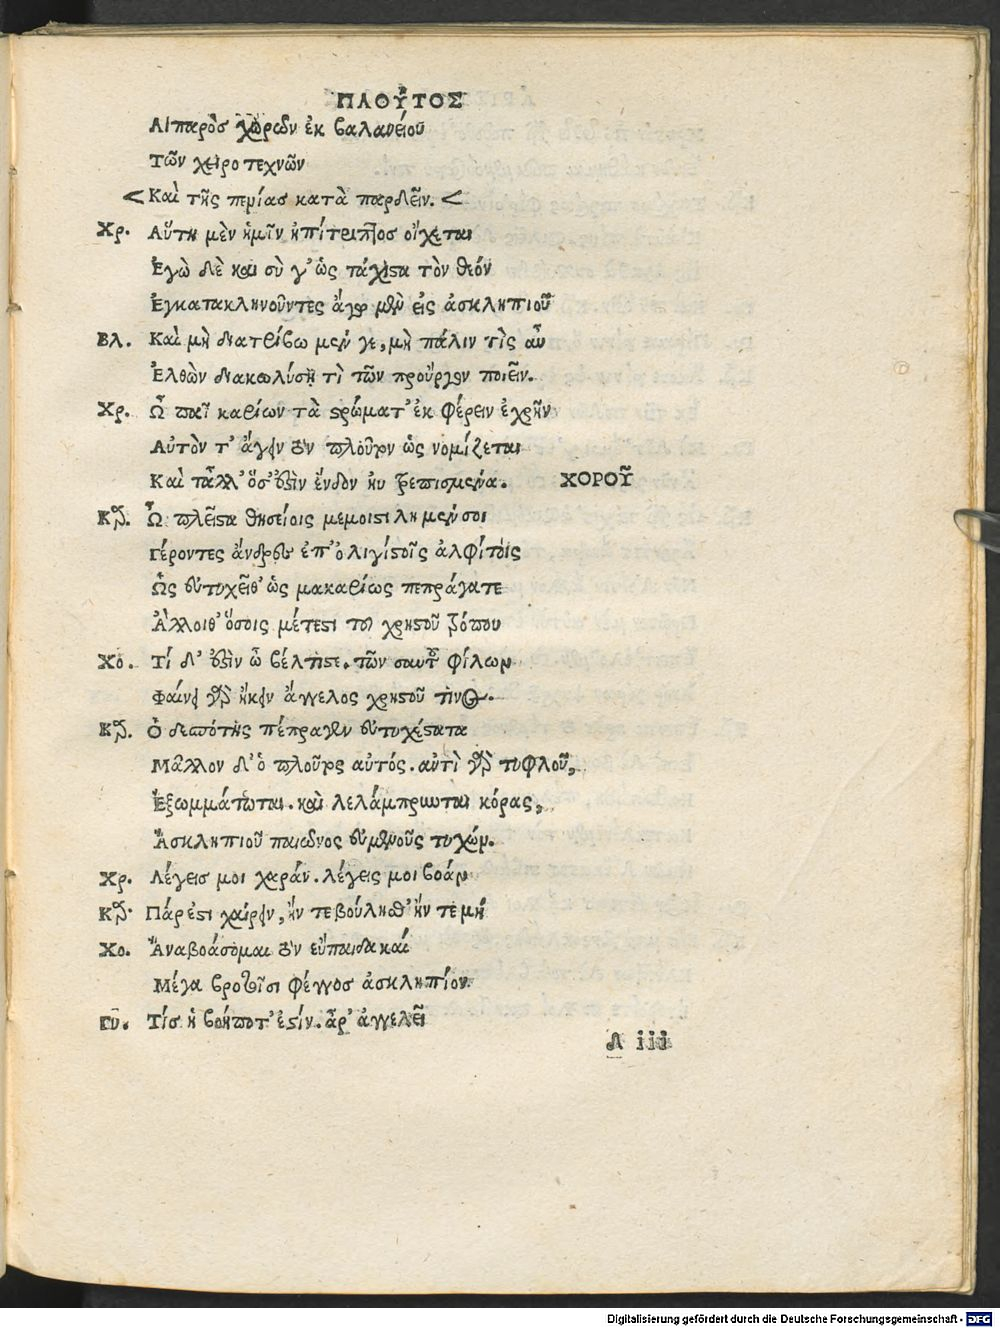 ΠΛΟΥ͂ΤΟΣ
Λιπαρὸς χωρῶν ἐκ βαλανείου
Τῶν χειροτεχνῶν
<Καὶ τῆς πενίας κατὰ παρδεῖν.<
Χρ. Αὕτη μὲν ἡμῖν ἡπίτριπτος οἴχεται
Ἐγὼ δὲ καὶ σὺ γ' ὡς τάχιστα τὸν θεόν
Ἐγκατακλινοῦντες ἄγωμεν εἰς ἀσκληπιοῦ
Βλ. Καὶ μὴ διατρίβωμέν γε, μὴ πάλιν τὶς αὖ
Ἐλθὼν διακωλύσῃ τὶ τῶν προὔργου ποιεῖν.
Χρ. Ὦ παῖ καρίων τὰ στρώματ' ἐκ φέρειν ἐχρῆν
Αὐτὸν τ' ἄγειν τὸν πλοῦτον ὡς νομίζεται
Καὶ τἆλλ' ὅσ' ἐστὶν ἔνδον ηὐτρεπισμένα. ΧΟΡΟΥ͂
Καρ. Ὦ πλεῖστα θησείοις μεμοιστιλημένοι
Γέροντες ἄνδρες ἐπ' ὀλιγίστοῖς ἀλφίτοις
Ὡς εὐτυχεῖθ' ὡς μακαρίως πεπράγατε
Ἄλλοιθ' ὅσοις μέτεστι τοῦ χρηστοῦ τρόπου
Χο. Τί δ' ἐστὶν ὦ βέλτιστε. τῶν σαυτοῦ φίλων
Φαίνει γὰρ ἥκειν ἄγγελος χρηστοῦ τινος.
Καρ. Ὁ δεσπότης πέπραγεν εὐτυχέστατα
Μᾶλλον δ' ὁ πλοῦτος αὐτός. αὐτὶ γὰρ τυφλοῦ,
Ἐξωμμάτωται. καὶ λελάμπρωται κόρας,
Ἀσκληπιοῦ παιῶνος εὐμενοῦς τυχών.
Χρ. Λέγεισ μοι χαράν. λέγεις μοι βοάν
Καρ. Πάρεστι χαίρειν, ἤν τε βούλησθ' ἤν τε μή
Χο. Ἀναβοάσομαι τὸν εὔπαιδα καί
Μέγα βροτοῖσι φέγγοσ ἀσκληπίον.
Γυ. Τίσ ἡ βοήποτ' ἐστίν. ἆρ' ἀγγελεῖ
Λ iii
Digitalisierung gefördert durch die Deutsche Forschungsgemeinschaft - DFG